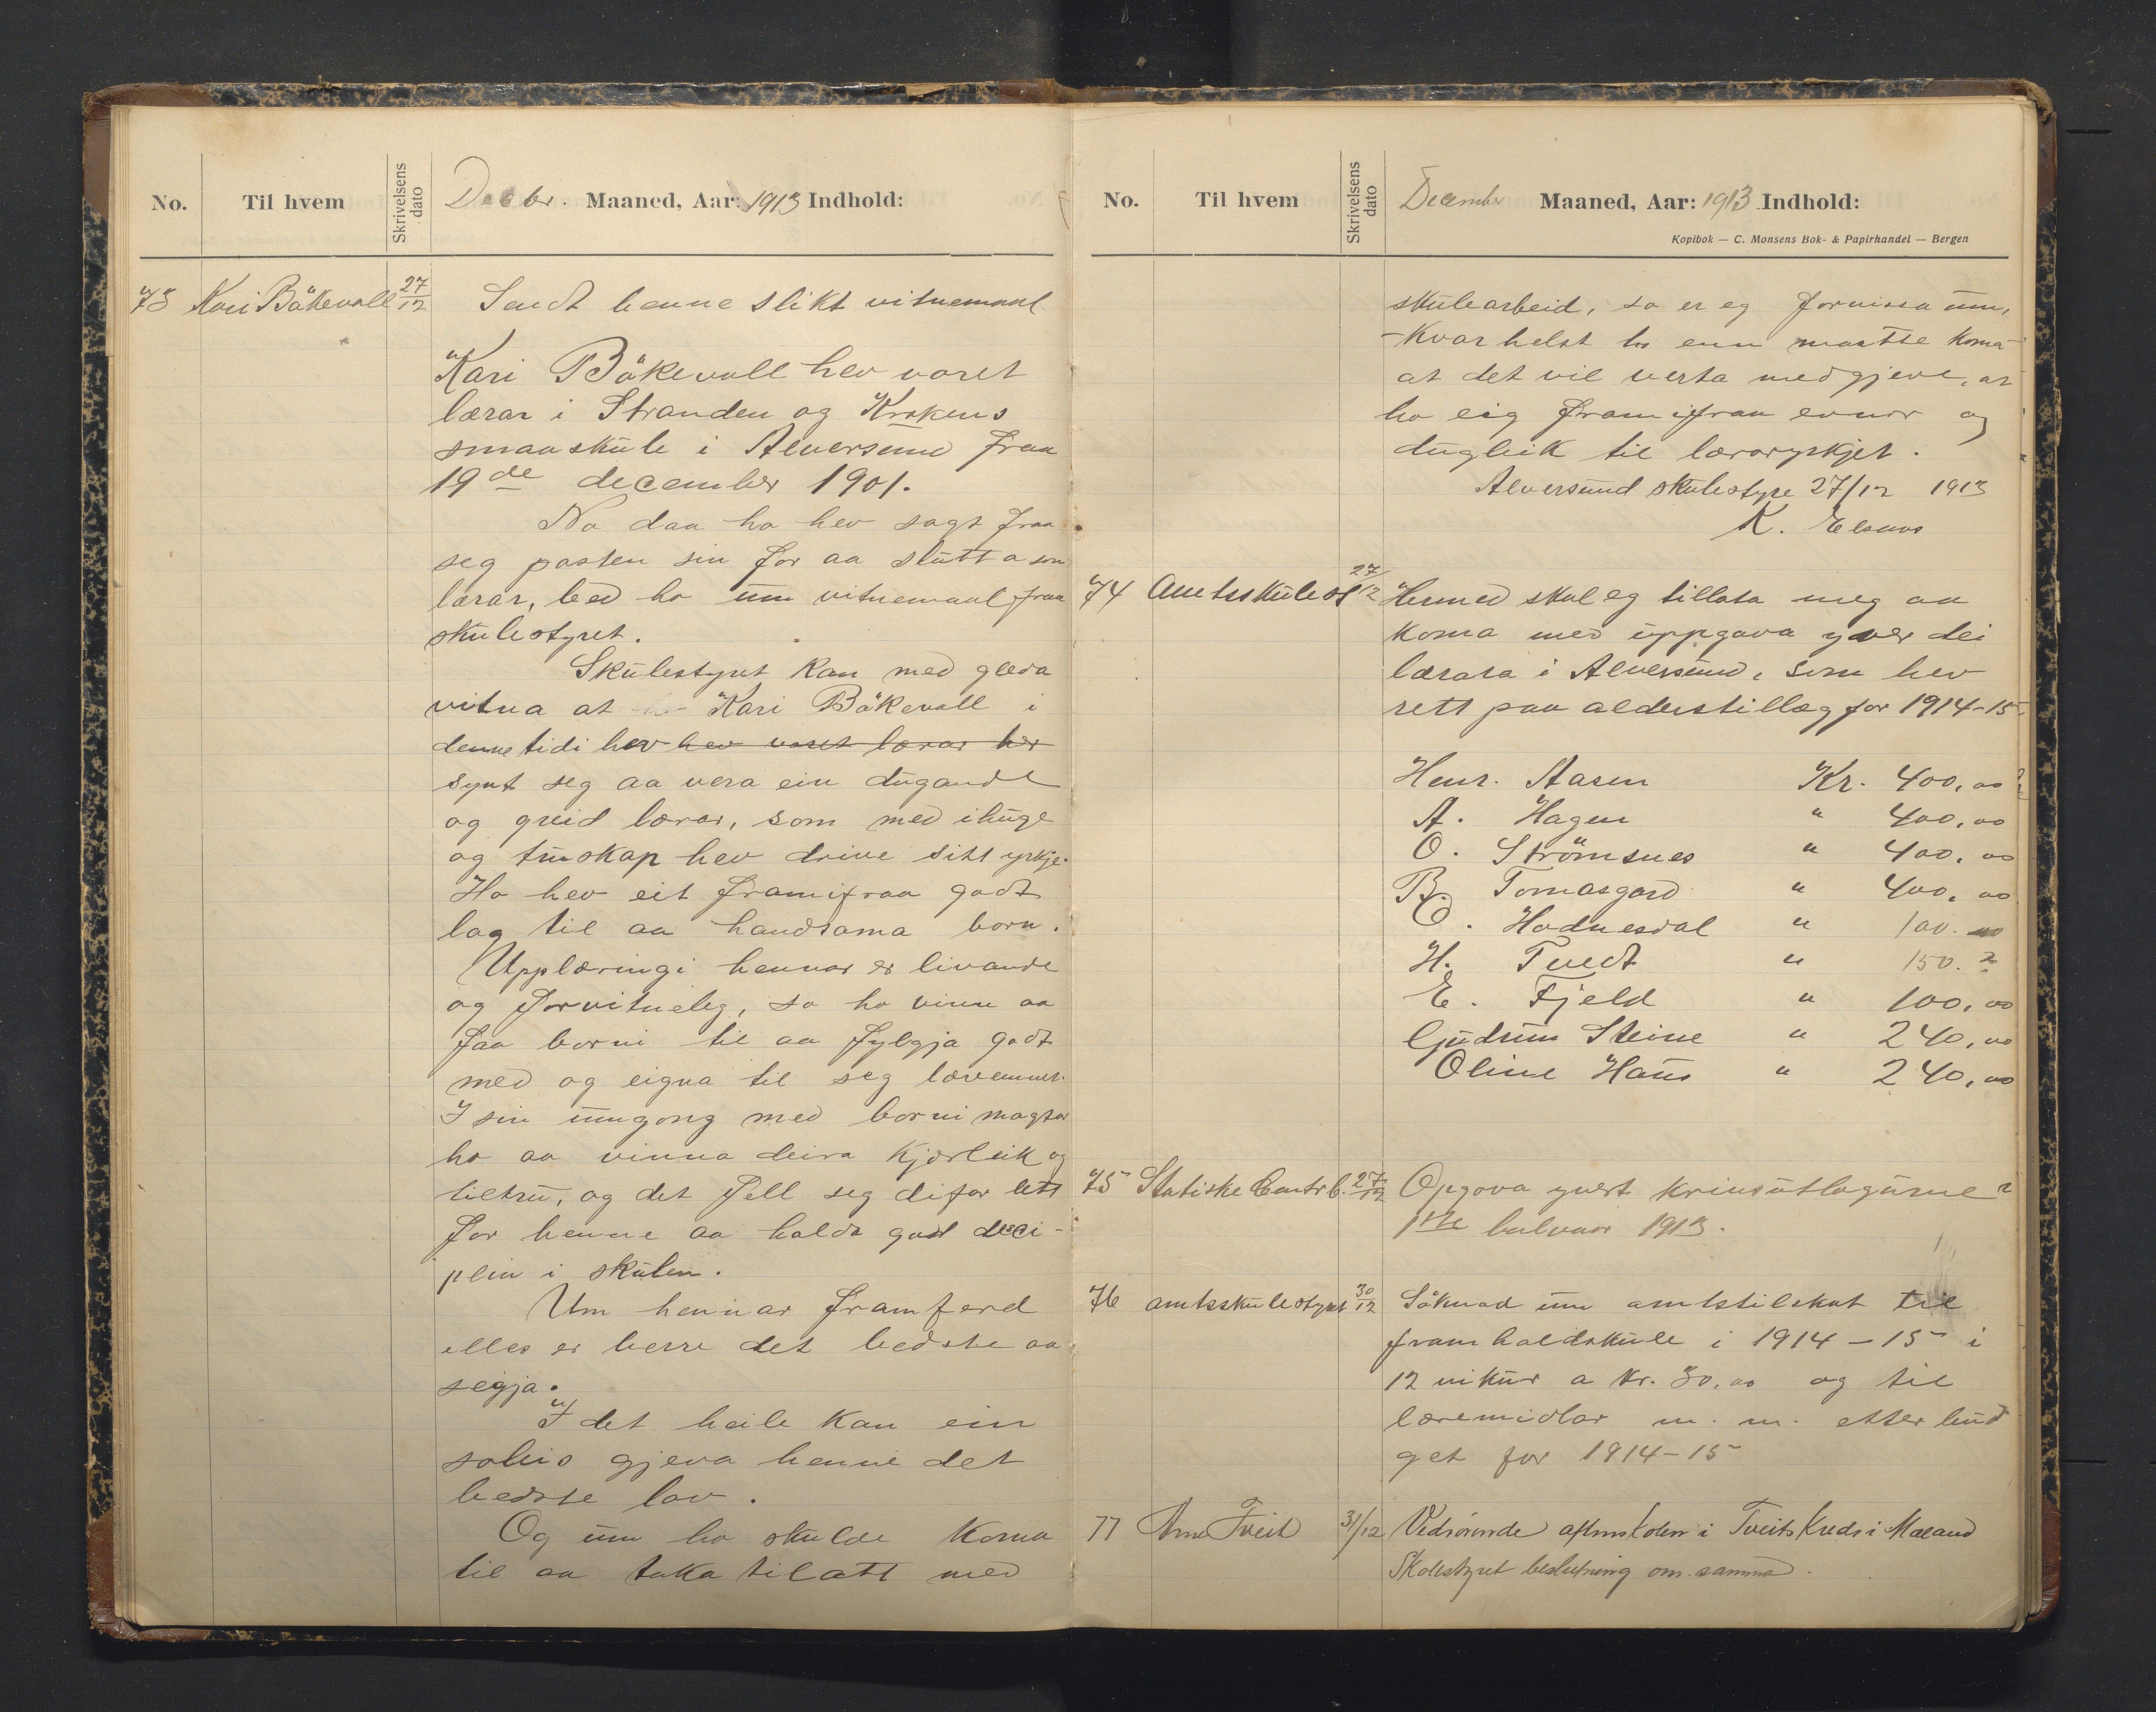 No. Til hvem Skrivelsens dato Decbr. Maaned, Aar: 1913 Indhold:
73 Kari Bökevoll 27/12 Sendt henne slikt vitnemaal
Kari Bökevoll hev voret
lærar i Stranden og Krokens
smaaskule i Alversund fraa
19de december 1901.
No daa ho hev sagt fraa
seg posten sin for aa slutta som
lærar, bed ho um vitnemaal fraa
skulestyret.
Skulestyret kan med gleda
vitna at Kari Bökevoll i
denne tidi hev hev voret lærar her
synt seg aa vera ein dugande
og greid lærar, som med ihuge
og truskap hev drive sitt yrkje.
Ho hev eit framifraa godt
lag til aa handsama born.
Upplæringi hennar er livande
og forvitneleg, so ho vinn aa
faa borni til aa fylgja godt
med og eigna til seg læreemnet.
I sin umgong med borni magtar
ho aa vinna deira kjærleik og
tiltru, og det fell seg difor lett
for henne aa halda god deci-
plin i skulen.
Um hennar framferd
elles er berre det bedste aa
segja.
I det heile kan ein
soleis gjeva henne det
bedste lov.
Og um ho skulde koma
til aa taka til att med
No. Til hvem Skrivelsens dato December Maaned, Aar: 1913 Indhold:
Kopibok — C. Monsens Bok- & Papirhandel — Bergen
skulearbeid, so er eg forvissa um,
- kvar helst ho enn maatte koma -
at det vil verta medgjeve, at
ho eig framifraa evnor og
dugleik til læraryrkjet.
Alversund skulestyre 27/12 1913
K. Elsaas
74 Amtsskulest 27/12 Hermed skal eg tillata meg aa
koma med uppgaava yver dei
lærara i Alversund, som hev
rett paa alderstillæg for 1914-15.
Henr. Aasen Kr. 400,00
A. Hagen " 400,00
O. Strömsnes " 400,00
B. Tomasgard " 400,00
O. Hodnesdal " 100.00
H. Tvedt " 150.
E. Fjeld " 100,00
Gudrun Steine " 240,00
Oline Haus " 240,00
75 Statiske Centrb. 27/12 Opgova yvert krinsutlogurne i
1ste halvaar 1913.
76 amtsskulestyret 30/12 Söknad um amtstilskot til
framhaldskule i 1914-15 i
12 vikur a kr. 30,00 og til
læremidlar m. m. etter bud
get for 1914-15
77 Arne Tveit 31/12 Vedrörende aftenskolen i Tveits Kreds i Mæland
Skolestyret beslutning om samme.